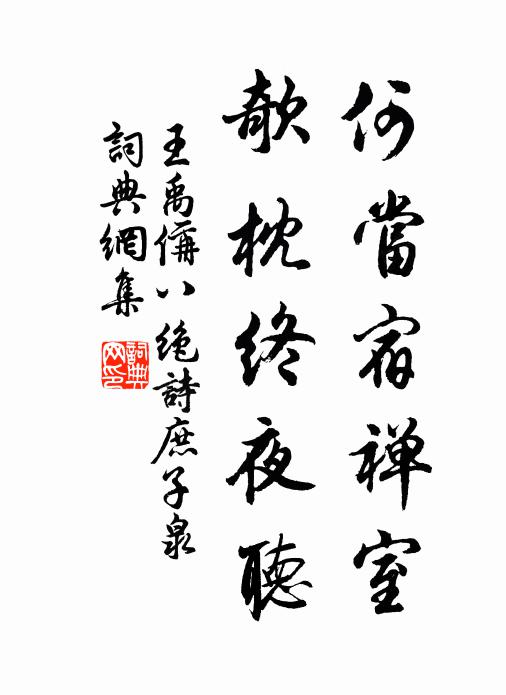 何當宿禅室
欹枕终夜聴
王禹偁八绝詩庶子泉
詞典網集
詞典网印